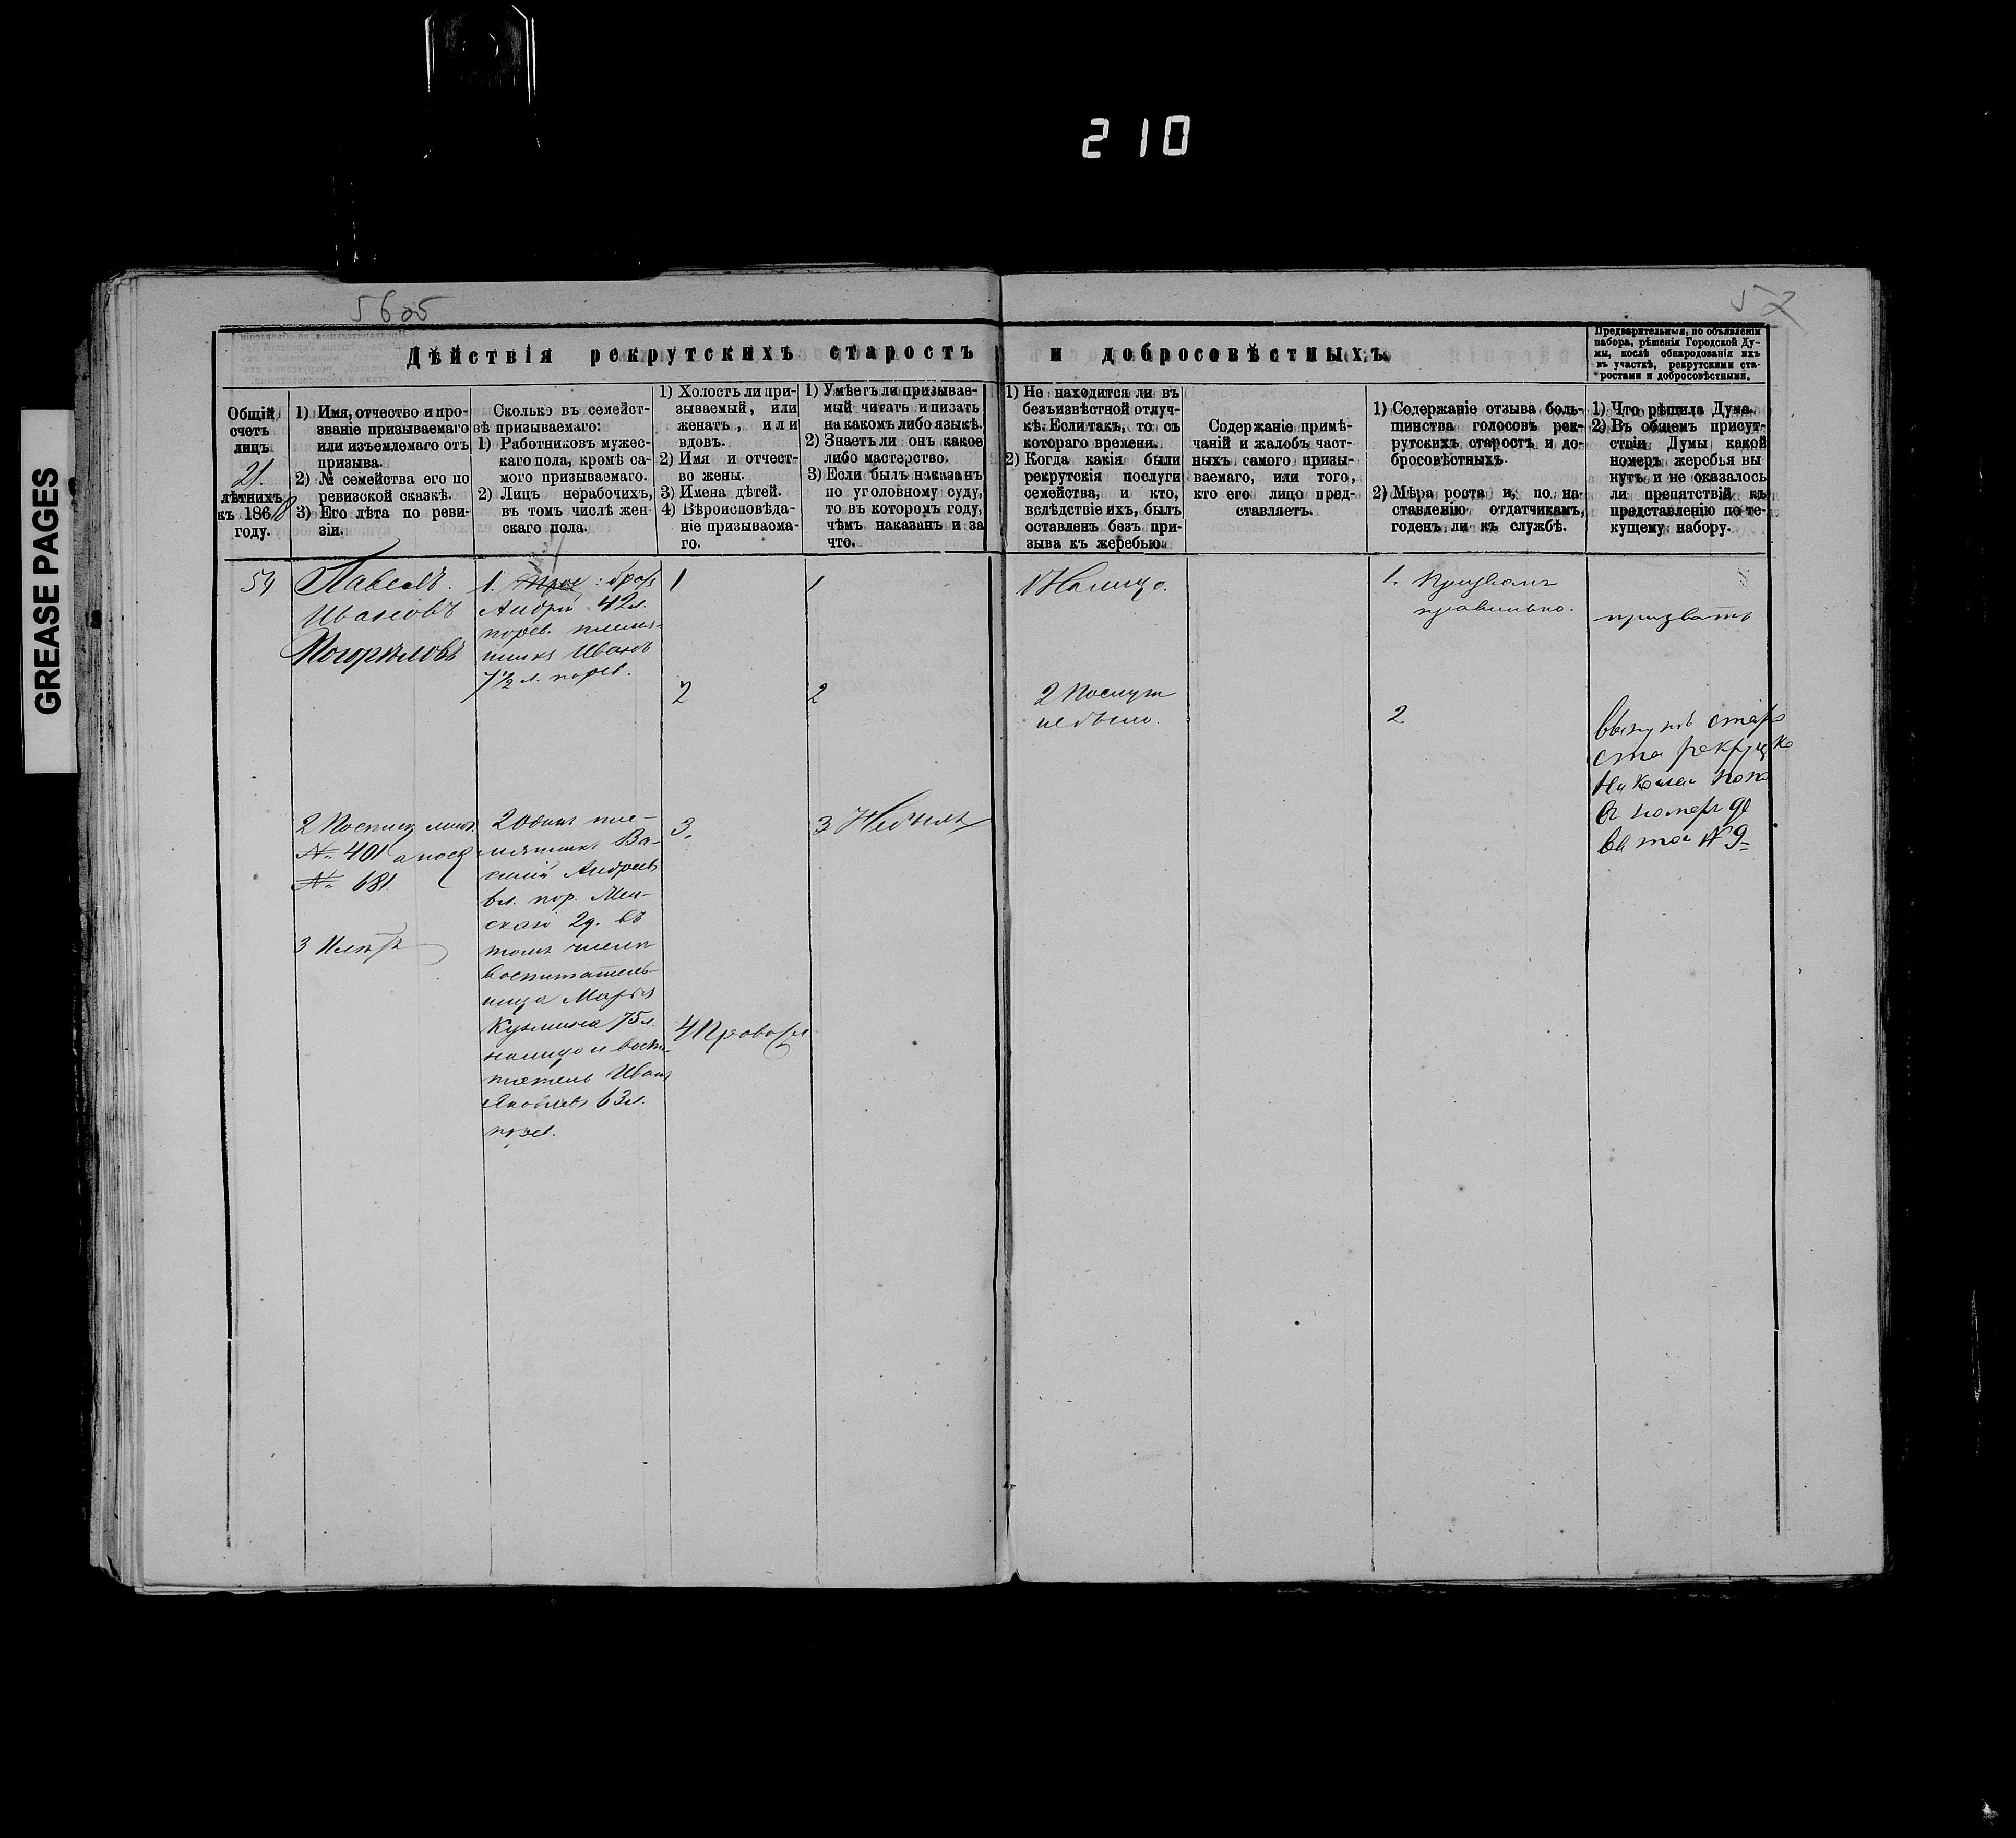 210
GREASE PAGES
56об
57
Дѣйствія рекрутскихъ старостъ и добросовѣстныхъ.
Предварительныя, по объявленіи
набора, рѣшенія Городской Ду-
мы, послѣ обнародованія ихъ
въ участкѣ, рекрутскими ста-
ростами и добросовѣстными.
Общій
счетъ
лицъ
21.
лѣтнихъ
къ 1868
году.
1) Имя, отчество и про-
званіе призываемаго
или изъемлемаго отъ
призыва.
2) № семейства его по
ревизской сказкѣ.
3) Его лѣта по реви-
зіи.
Сколько въ семейст-
вѣ призываемаго:
1) Работниковъ мужес-
каго пола, кромѣ са-
мого призываемаго.
2) Лицъ нерабочихъ,
въ томъ числѣ жен-
скаго пола.
1) Холостъ ли при-
зываемый, или
женатъ, или
вдовъ.
2) Имя и отчест-
во жены.
3) Имена дѣтей.
4) Вѣроисповѣда-
ніе призываема-
го.
1) Умѣетъ ли призывае-
мый читать и писать
на какомъ либо языкѣ.
2) Знаетъ ли онъ какое
либо мастерство.
3) Если былъ наказанъ
по уголовному суду,
то въ которомъ году,
чѣмъ наказанъ и за
что.
1) Не находится ли въ
безъизвѣстной отлуч-
кѣ. Если такъ, то съ
котораго времени.
2) Когда какія были
рекрутскія послуги
семейства, и кто,
вслѣдствіе ихъ, былъ
оставленъ безъ при-
зыва къ жеребью.
Содержаніе примѣ-
чаній и жалобъ част-
ныхъ самого призы-
ваемаго, или того,
кто его лицо пред-
ставляетъ.
1) Содержаніе отзыва боль-
шинства голосовъ рек-
рутскихъ старостъ и до-
бросовѣстныхъ.
2) Мѣра роста и, по на-
ставленію отдатчикамъ,
годенъ ли къ службѣ.
1) Что рѣшила Дума.
2) Въ общемъ присут-
ствіи Думы какой
номеръ жеребья вы
нутъ и не оказалось
ли препятствій къ
представленію по те-
кущему набору.
54
Павелъ
Ивановъ
Погорѣловъ
№ 401
№ 681
1. братъ
Андрей 42 л.
племя-
никъ Иванъ
7½ л.
2 Одинъ пле-
мянникъ Ва-
силій Андреевъ
Жен-
скаго 2 д. въ
томъ числѣ
воспитатель-
ница Марья
Кузмина 75 л.
налицо и воспи-
татель Иванъ
Яковлевъ 63 л.
1
2
3.
4 Правосл
1
2
3 Небылъ
1 Налицо.
2 Послуги
небыло.
1. Призванъ
правильно.
2
призвать
вынулъ старо
ста рекруцко
Николай Попо
въ номеръ де
вятой № 9